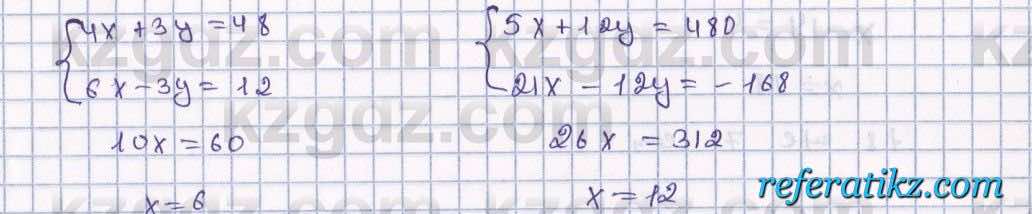 {4x + 3y = 48
{6x - 3y = 12
10x = 60
x = 6
{5x + 12y = 480
{21x - 12y = - 168
26x = 312
x = 12
kzgdz.com
referatikz.com